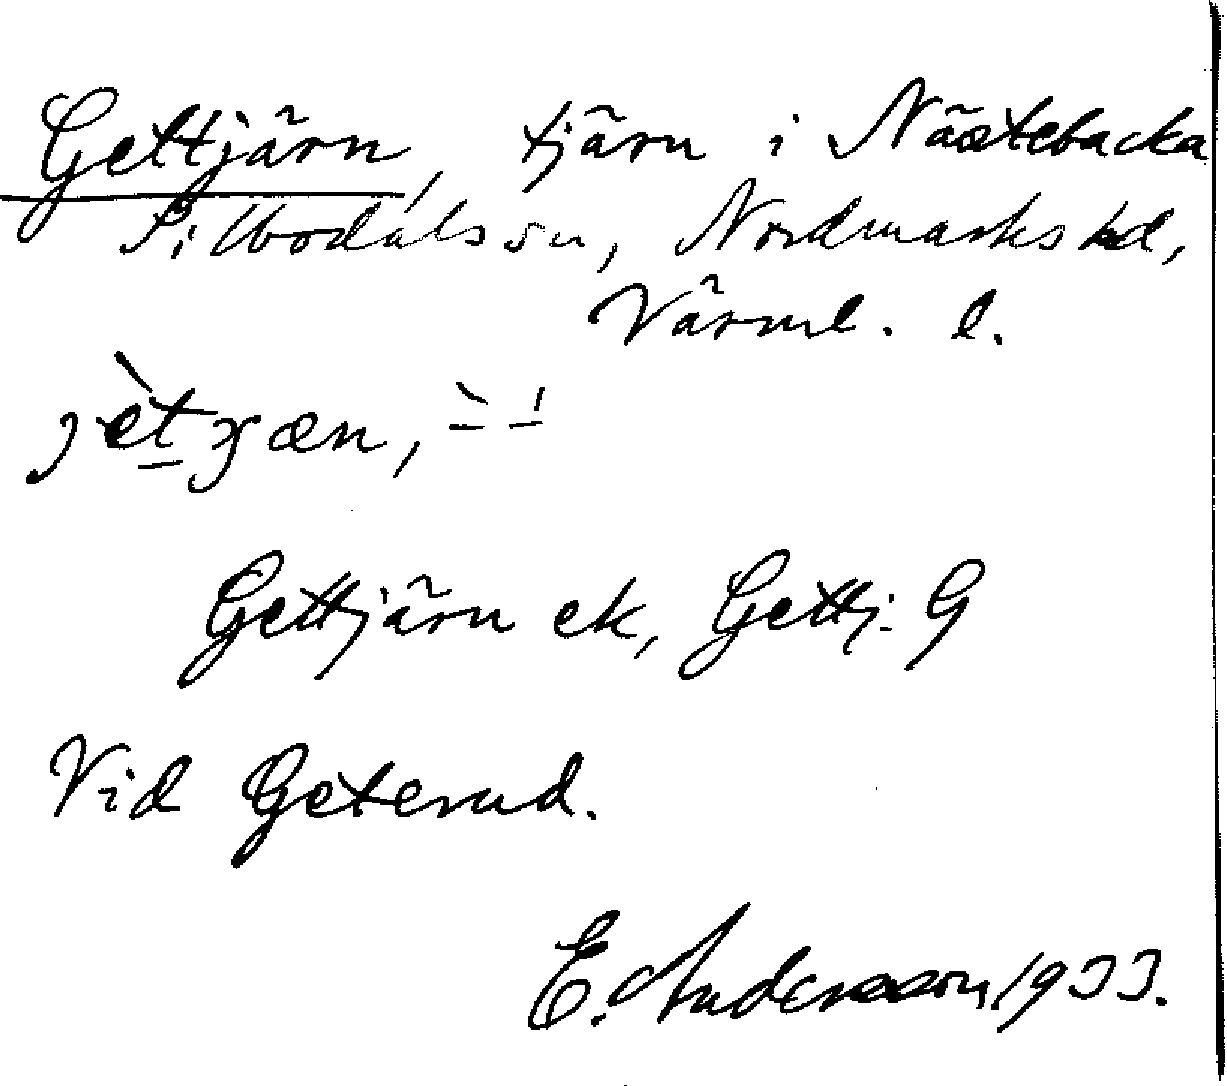 Gettjärn, tjärn i Nästebacka
Sillbodals sn, Nordmarks hd,
Värml. l.
Gettjärn ek, Gettj. G
Vid Geterud.
E. Andersson 1933.